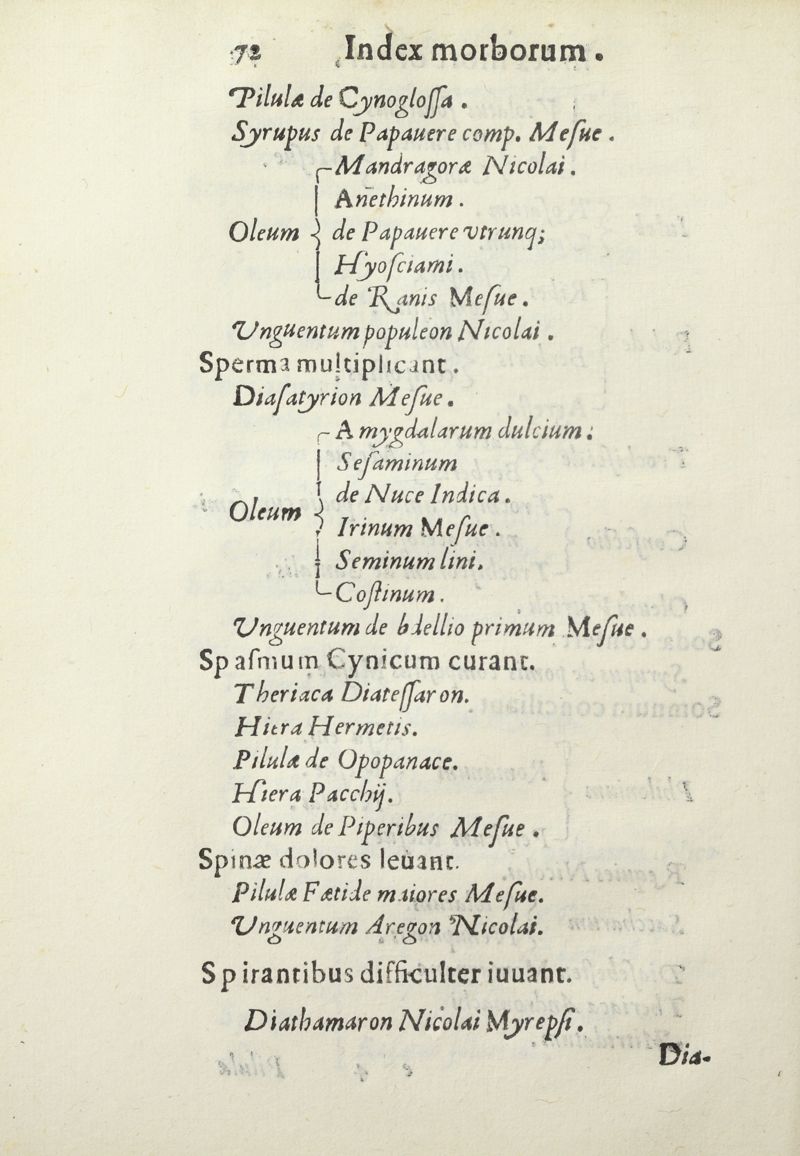 72 Index morborum.
Pilulæ de Cynoglossa.
Syrupus de Papauere comp. Mesue.
Mandragoræ Nicolai.
Anethinum.
Oleum de Papauere vtrunq;
Hyosciami.
de Ranis Mesue.
Vnguentum populeon Nicolai.
Sperma multiplicant.
Diasatyrion Mesue.
Amygdalarum dulcium.
Sesaminum
de Nuce Indica.
Oleum
Irinum Mesue.
Seminum lini.
Costinum.
Vnguentum de bdellio primum Mesue.
Spasmum Cynicum curant.
Theriaca Diatessaron.
Hiera Hermetis.
Pilulæ de Opopanace.
Hiera Pacchij.
Oleum de Piperibus Mesue.
Spinæ dolores leuant.
Pilulæ Fætide maiores Mesue.
Vnguentum Aregon Nicolai.
Spirantibus difficulter iuuant.
Diathamaron Nicolai Myrepsi.
Dia-